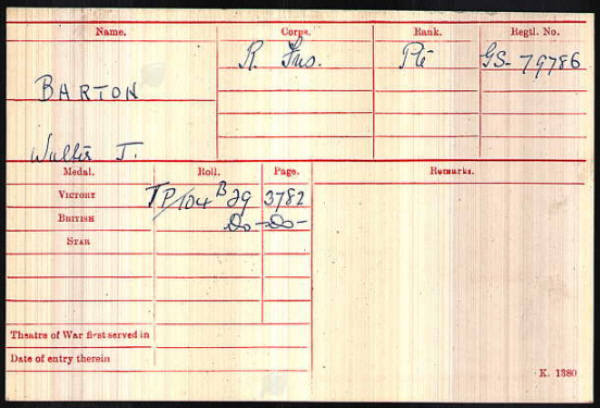 Name. Corps. Rank. Regtl. No.
BARTON R. Fus. Pte GS-79786
Wallis J.
Medal. Roll. Page. Remarks.
VICTORY TP/104 B 29 3782
BRITISH Do- Do-
STAR
Theatre of War first served in
Date of entry therein
K. 1380